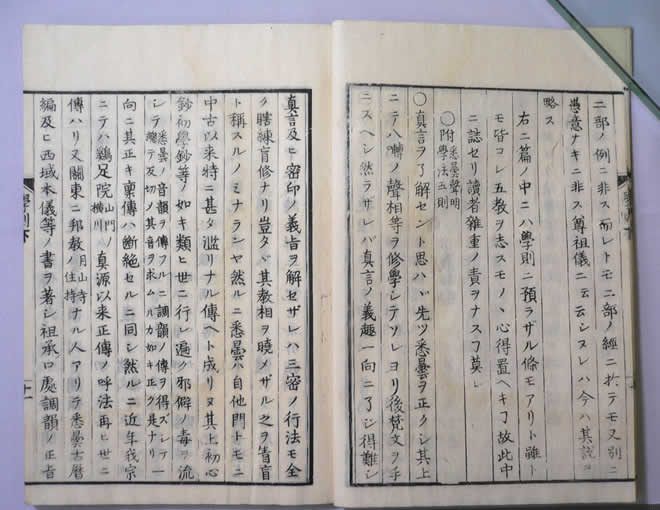 二部ノ例ニ非ス而レトモ二部ノ經ニ於テモ又別ニ
愚意ナキニ非ス尊祖儀ニ云云シヌレハ今ハ其説ヲ
略ス
右二篇ノ中ニハ學則ニ預ラザル條モアリト雖ト
モ皆コレ五教ヲ志スモノヽ心得置ヘキヿ故此中
ニ誌セリ讀者雜重ノ責ヲナスヿ莫レ
〇附 悉曇聲明學法五則
〇真言ヲ了解セント思ハヾ先ツ悉曇ヲ正クシ其上
ニテ八囀ノ聲相等ヲ修學シテソレヨリ後梵文ヲ手
ニスヘシ然ラザレバ真言ノ義趣一向ニ了シ得難シ
真言及ヒ密印ノ義旨ヲ解セザレハ三密ノ行法モ全
ク瞎練盲修ナリ豈タヾ其教相ヲ曉メザル之ヲ盲
ト稱スルノミナランヤ然ルニ悉曇ハ自他門トモニ
中古以来特ニ甚タ濫リナル傳ヘト成リヌ其上初心
鈔初學鈔等ノ如キ類ヒ世ニ行レ遍ク邪僻ノ毒ヲ流
シテ悉曇ノ音韻ヲ傳フルニ調韻ノ傳ヲ得ズシテ一
向ニ其正キ稟傳ハ断絶セルニ同シ然ルニ近年我宗
ニテハ鷄足院山門横川ノ真源以来正傳ノ呼法再ヒ世ニ
傳ハリ又關東ニ邦教月山寺ノ住持ナル人アリテ悉曇古暦
編及ヒ西域本儀等ノ書ヲ著シ祖承口處調韻ノ正音
學則下
十一